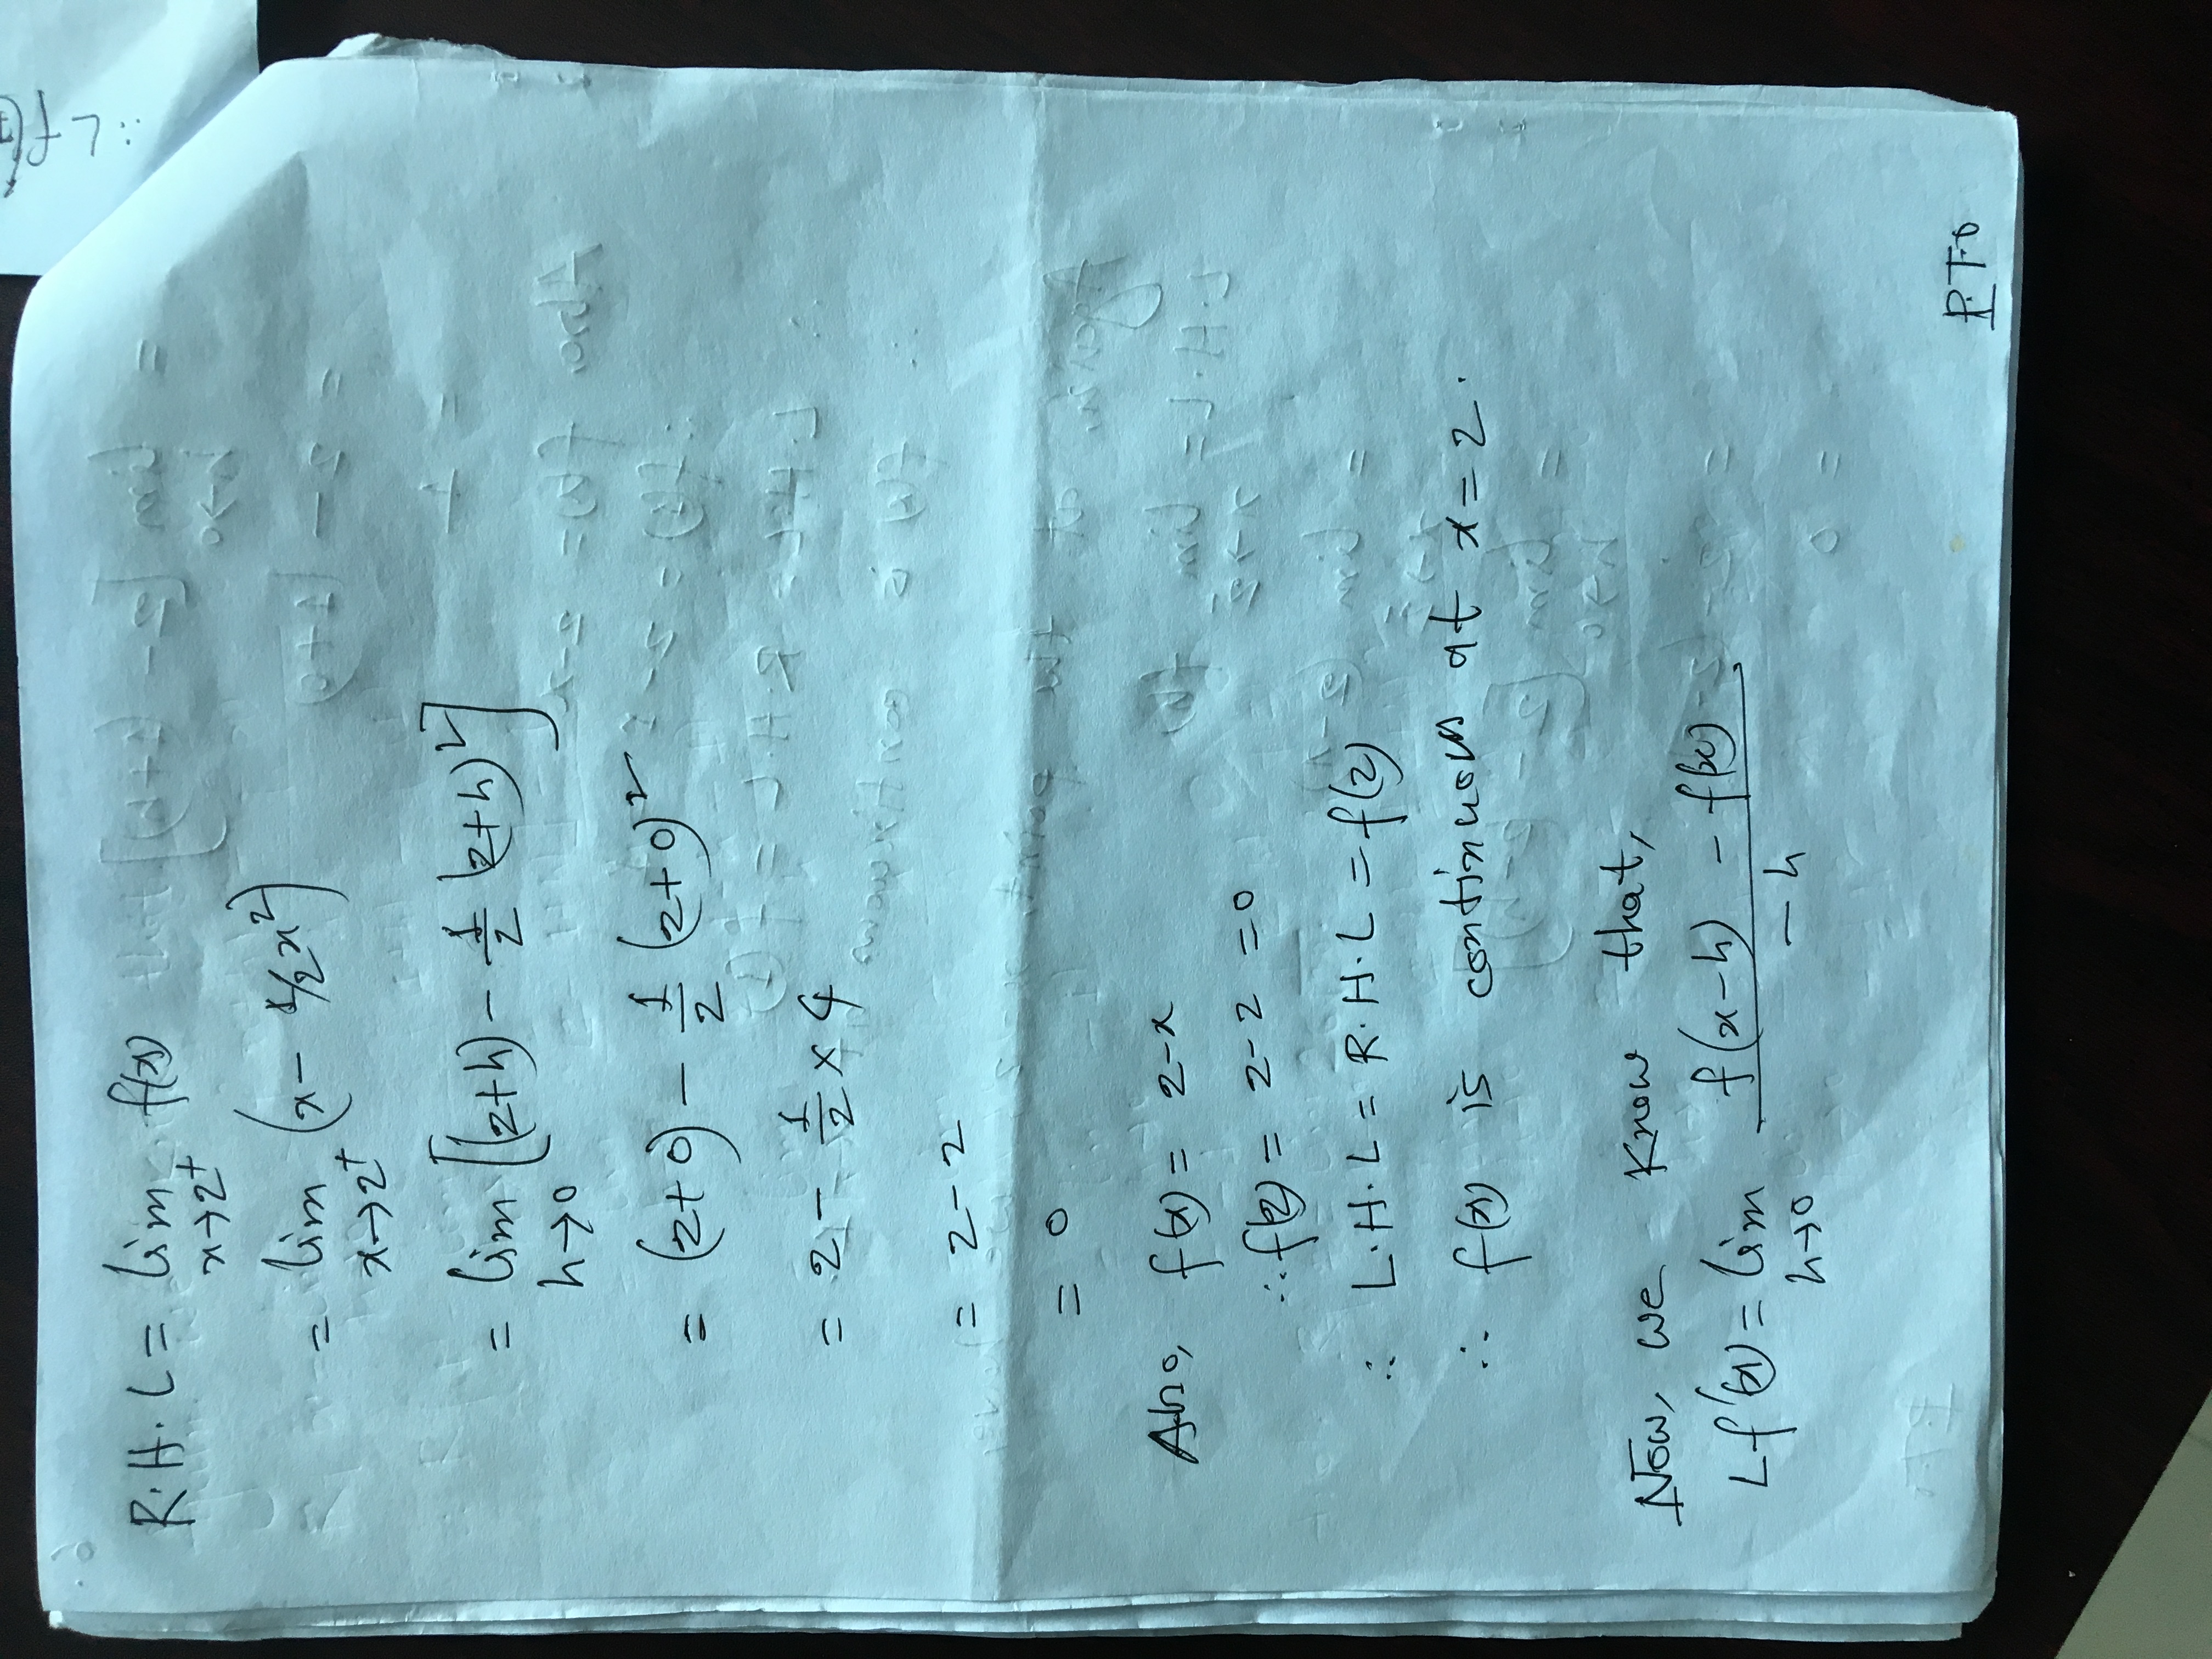 R.H.L = lim f(x)
x→2⁺
= lim (x - 1/2 x²)
x→2⁺
= lim [(2+h) - 1/2 (2+h)²]
h→0
= (2+0) - 1/2 (2+0)²
= 2 - 1/2 × 4
= 2-2
= 0
Also, f(x) = 2-x
∴ f(2) = 2-2 = 0
∴ L.H.L = R.H.L = f(2)
∴ f(x) is continuous at x = 2.
Now, we know that,
Lf'(x) = lim f(x-h) - f(x) / -h
h→0
P.T.O
∴ L f(